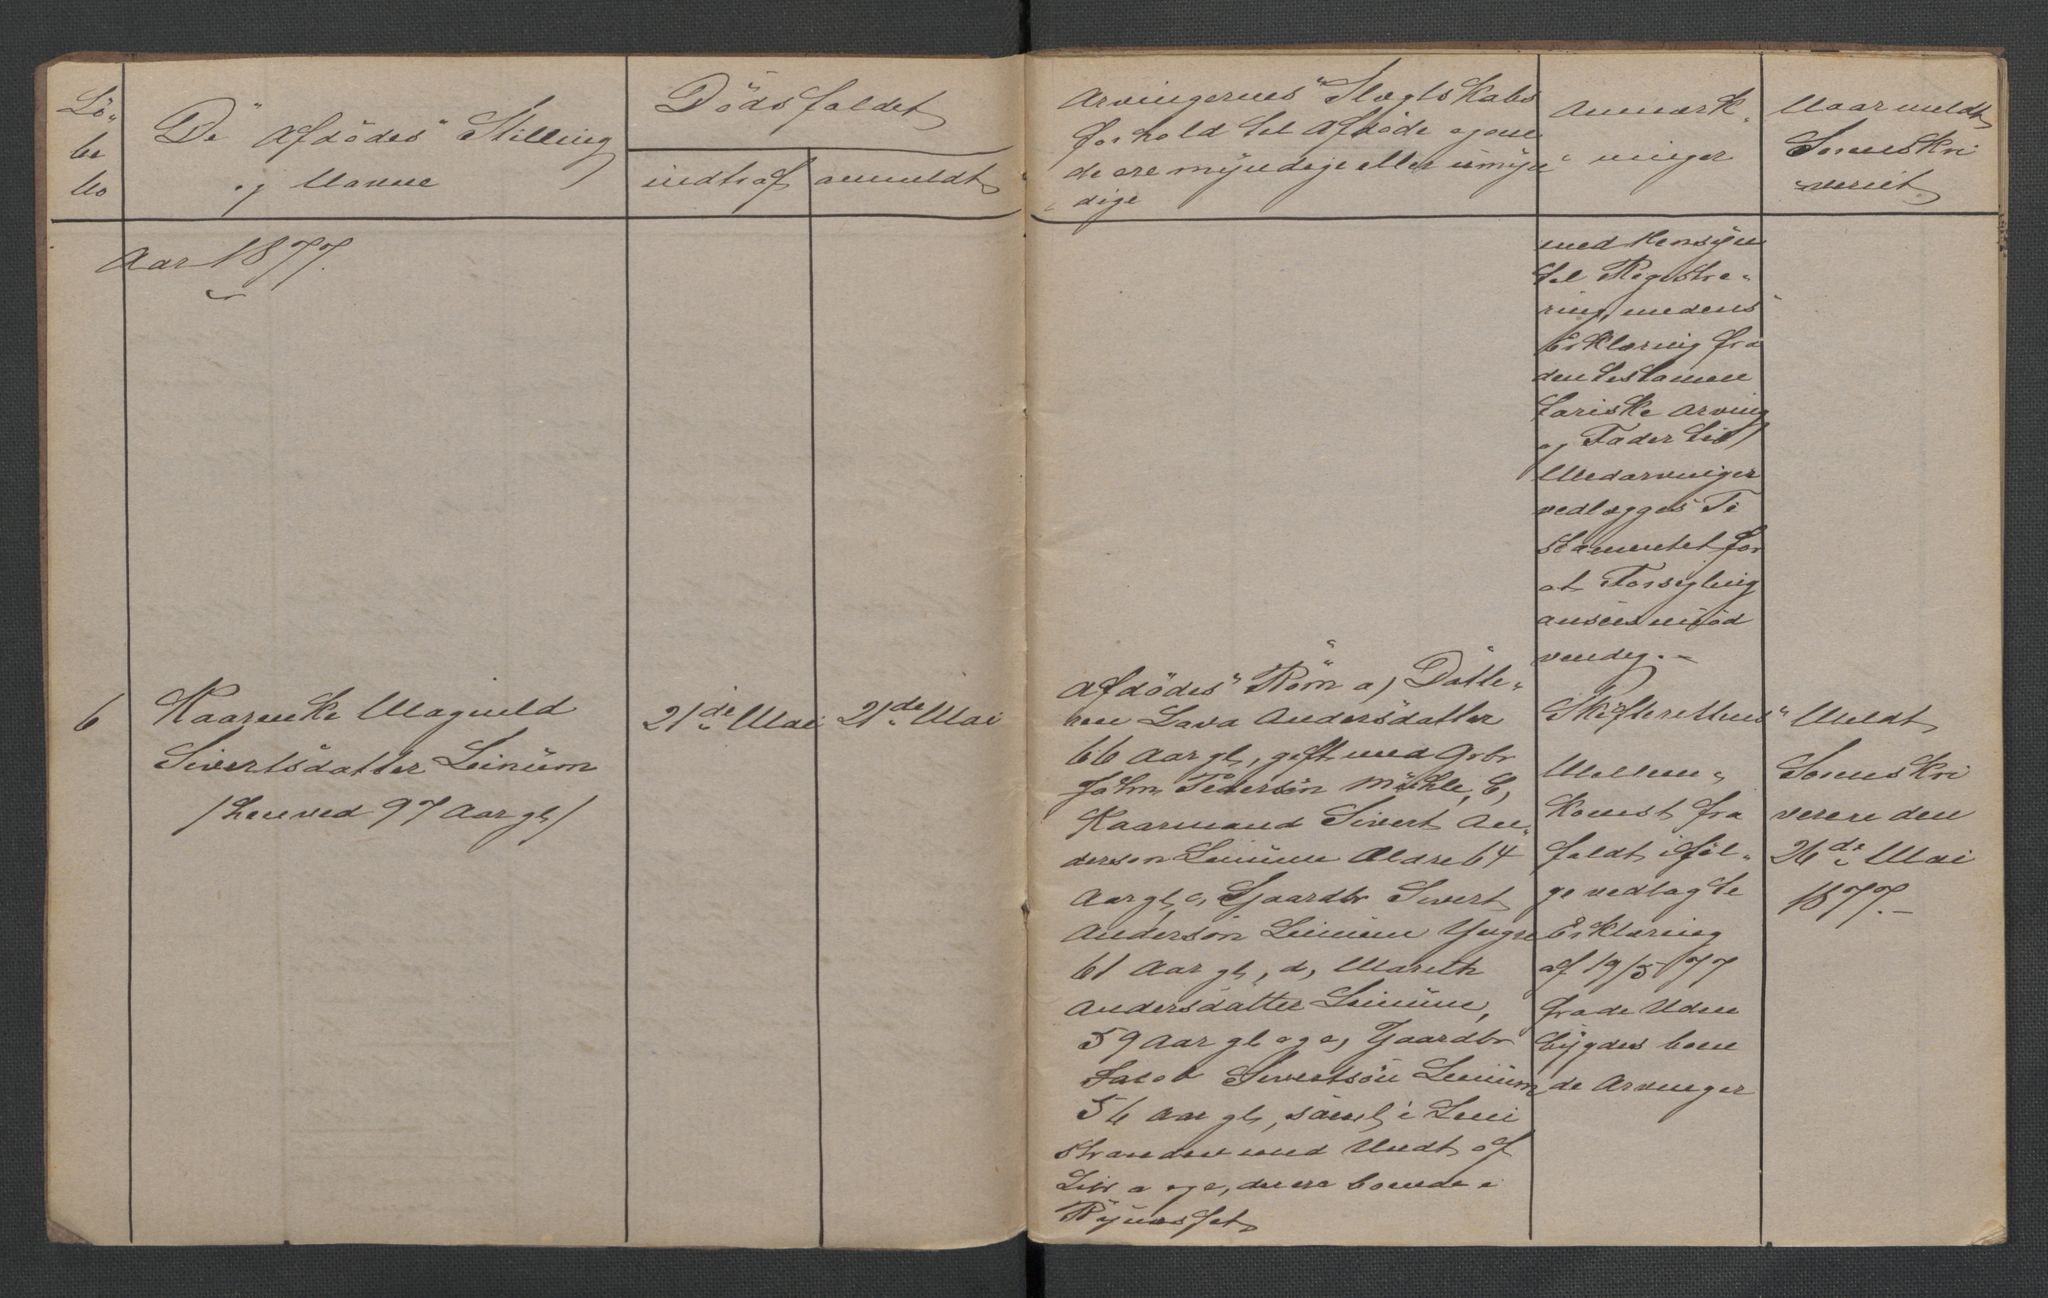 Lö-
be
No
De Afdödes Stilling
og Navne
Dödsfaldet
indtraf
anmeldt
Arvingernes Slægtskabs
forhold til Afdöde og om
de ere myndige eller umyn
dige
Anmærk-
ninger
Naar meldt
Sorenskri
veriet
Aar 1877.
med Hensyn
til Registre-
ring, medens
Erklæring fra
den testamen
tariske Arving
og Fader til
Medarvinger
vedlægges Te
stamentet for
at Forsegling
ansees unöd
vendig.-
6
Kaarenke Magnild
Sivertsdatter Leinum
/henved 97 Aar gl/
21de Mai
21de Mai
Afdödes Börn a, Datte-
ren Lava Andersdatter
66 Aar gl, gift med Grbr
John Pedersön Möhle, b,
Kaarmand Sivert An-
dersøn Leinum Ældre 64
Aar gl, c, Gaardbr Sivert
Andersön Leinum Yngre
61 Aar gl, d, Mareth
Andersdatter Leinum,
59 Aar gl og e, Gaardbr
Jacob Sivertsön Leinum
56 Aar gl, samtl i Lein
stranden med Undt af
Litr a og c, der ere boende i
Bynæsset
Skifterettens
Mellem-
komst fra
faldt iföl-
ge vedlagte
Erklæring
af 19/5 77
fra de Uden
bygdes boen
de Arvinger
Meldt
Sorenskri
veren den
26de Mai
1877.-